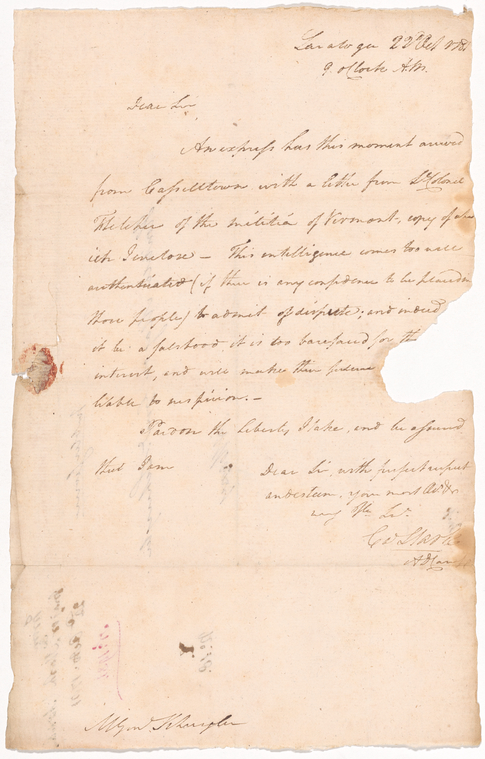 Saratoga 22d Oct 178
9. oClock AM.
Dear Sir
An express has this moment arrived
from Casselltown with a letter from Lt Colonel
Fletcher of the militia of Vermont, copy of wh
ich I enclose – This intelligence comes too well
authenticated (if there is any confidence to be placed in
those people) to admit of dispute; and indeed
it be a falshood it is too barefaced for th
interest, and will make their
liable to suspicion. –
Pardon the Liberty I take, and be assured
that I am
Dear Sir, with perfect respect
and esteem, your most
Sr.
C Stark
MGenl Schuyler